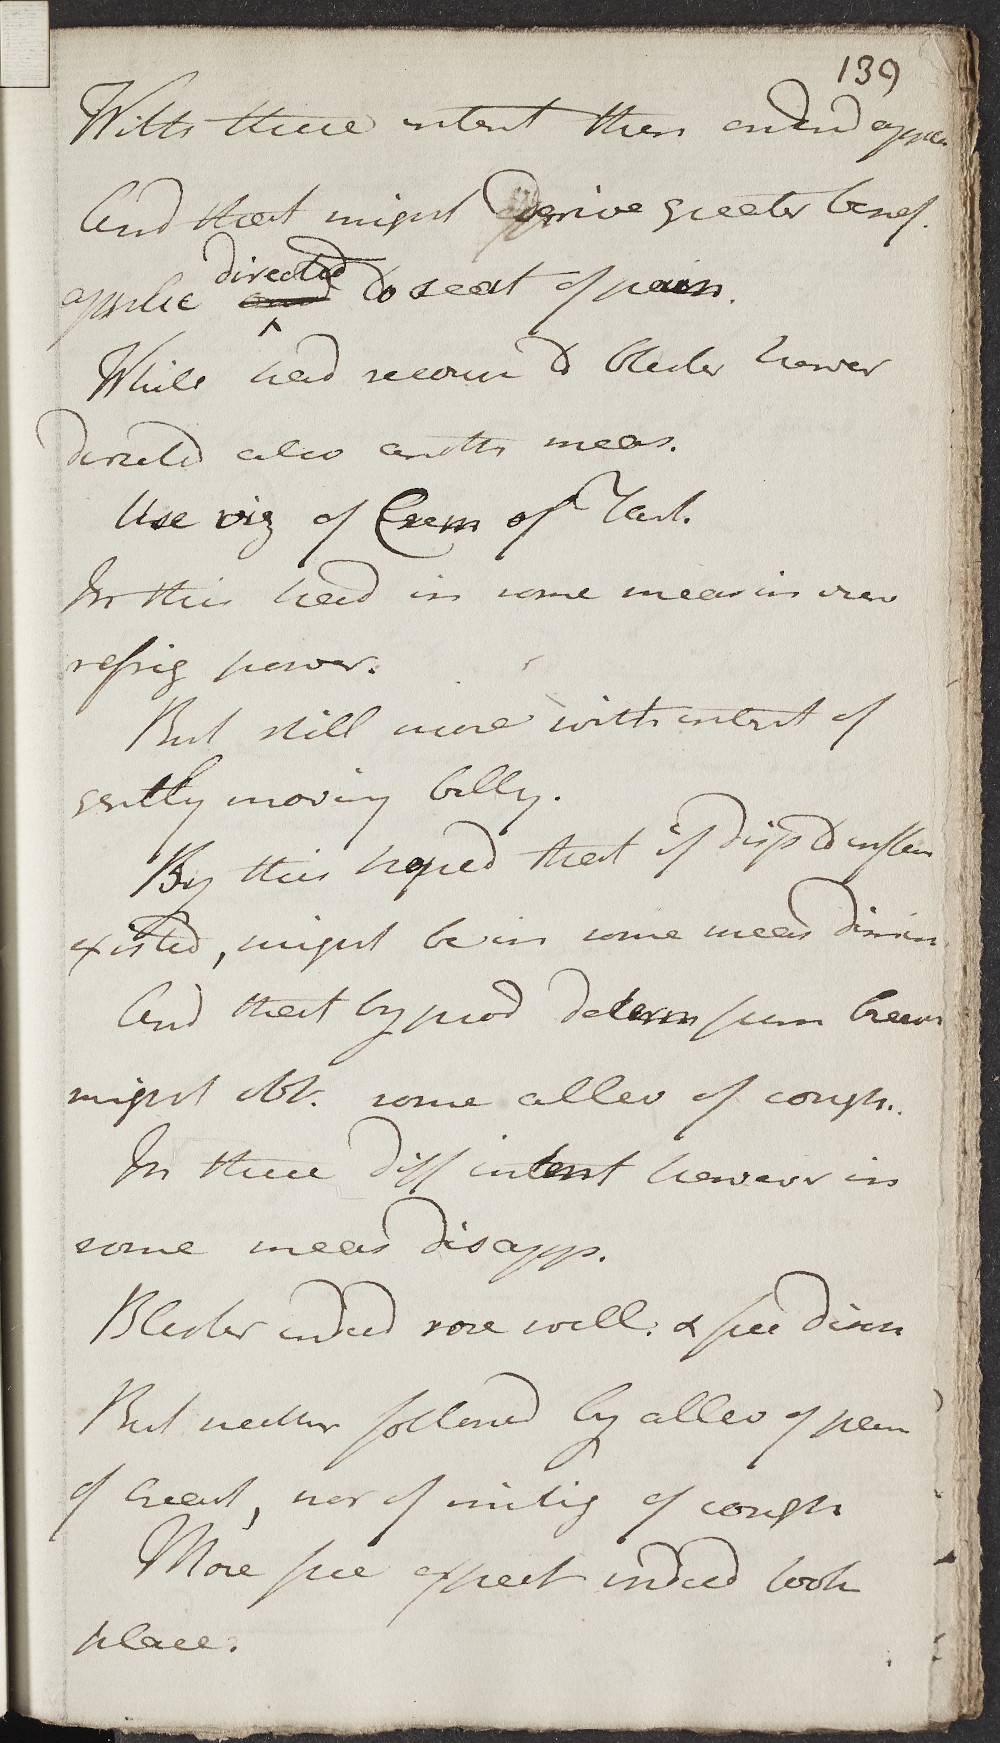 139
With these intent then endeav appea
And that might derive greater benef.
applic directed to seat of pain.
While had recour to blister howev
directed also anothr meas.
Use viz of Crem of Tart.
In this had in some meas in view
refrig power.
But still more with intent of
gently moving belly.
By this hoped that if disp to inflam
existed, might be in some meas dimin
And that by prod determ from breas
might obt. some allev of cough.
In these diff intent howevr in
some meas disapp.
Blister indeed rose well. & free disch
But neither followed by allev of pain
of breast, nor of mitig of cough
More free expect indeed took
place.